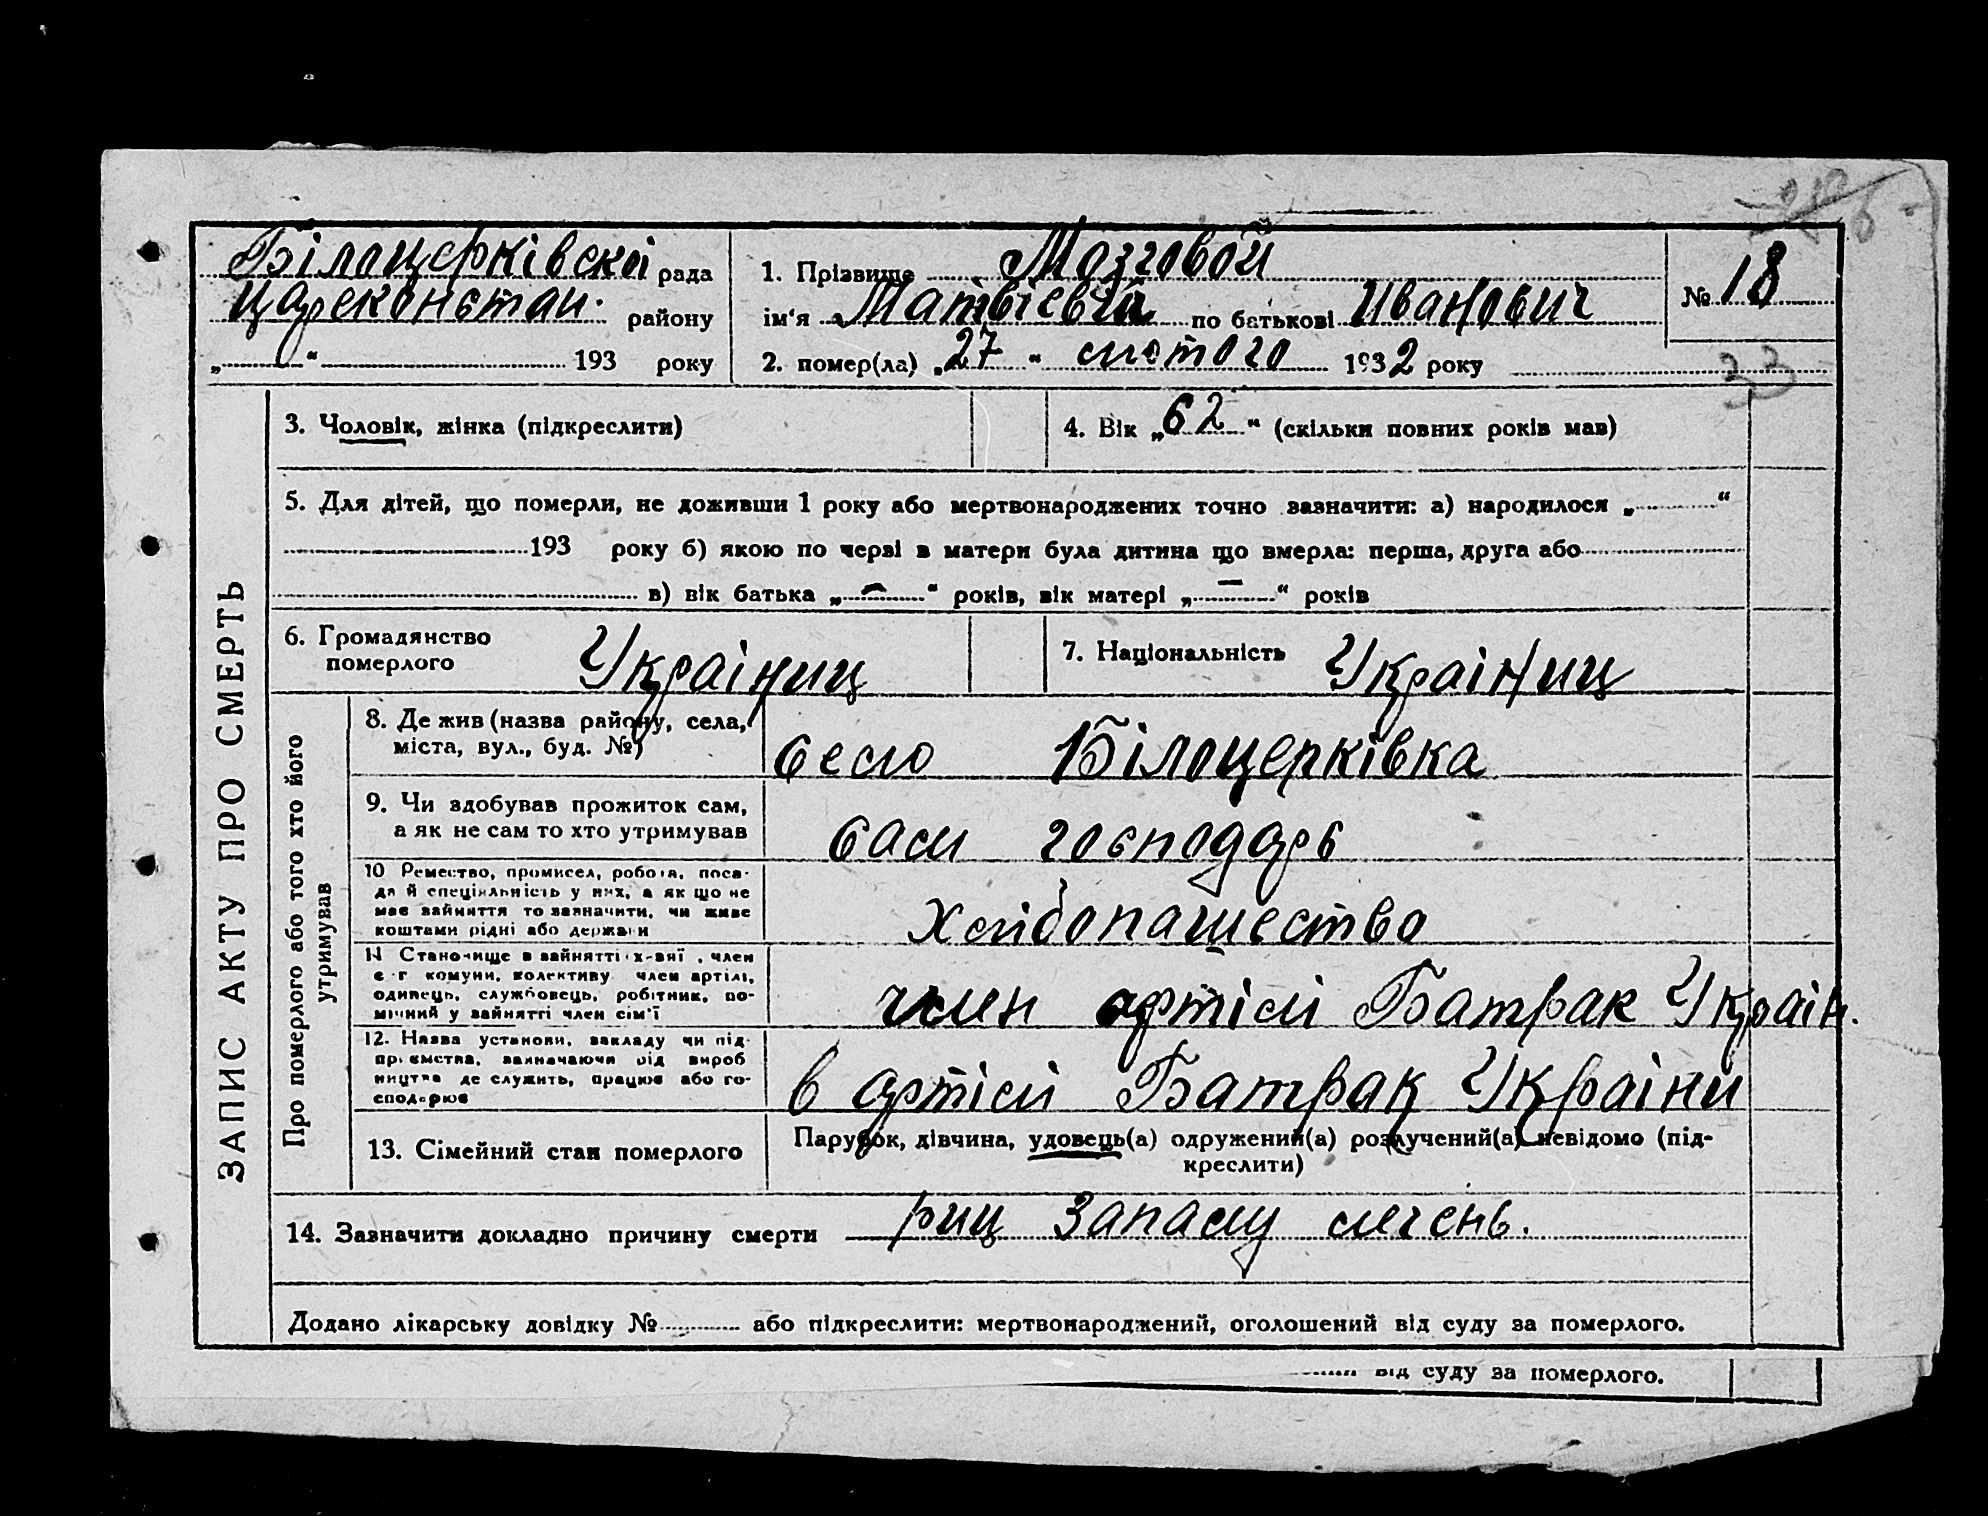 Білоцерківскої рада
Цареконстан. району
„ “ 193 року
1. Прізвище Мозговой
ім'я по батькові Иванович
2. помер(ла) „27“ лютого 1932 року
№ 18
33
3. Чоловік, жінка (підкреслити)
4. Вік „62“ (скільки повних років мав)
5. Для дітей, що померли, не доживши 1 року або мертвонароджених точно зазначити: а) народилося „ “
193 року б) якою по черві в матери була дитина що вмерла: перша, друга або
в) вік батька „—“ років, вік матері „—“ років
6. Громадянство
померлого Україниц
7. Національність Україниц
ЗАПИС АКТУ ПРО СМЕРТЬ
Про померлого або того хто його
утримував
8. Де жив (назва району, села,
міста, вул., буд. №) село Білоцерківка
9. Чи здобував прожиток сам,
а як не сам то хто утримував сам господарь
10 Ремество, промисел, робота, поса-
да й спеціяльність у них, а як що не
має зайняття то зазначити, чи живе
коштами рідні або держави
хлібопашество
11 Становище в зайнятті член
комуни, колективу член артілі,
одинець, службовець, робітник, по-
мічний у зайнятті член сім'ї
член артілі Батрак Україн.
12. Назва установи, закладу чи під-
приємства, зазначаючи від вироб
ництва де служить, працює або го-
сподарює
в артілі Батрак України
13. Сімейний стан померлого
Парубок, дівчина, удовець(а) одружений(а) розлучений(а) невідомо (під-
креслити)
14. Зазначити докладно причину смерти запалу легень.
Додано лікарську довідку № або підкреслити: мертвонароджений, оголошений від суду за померлого.
від суду за померлого.